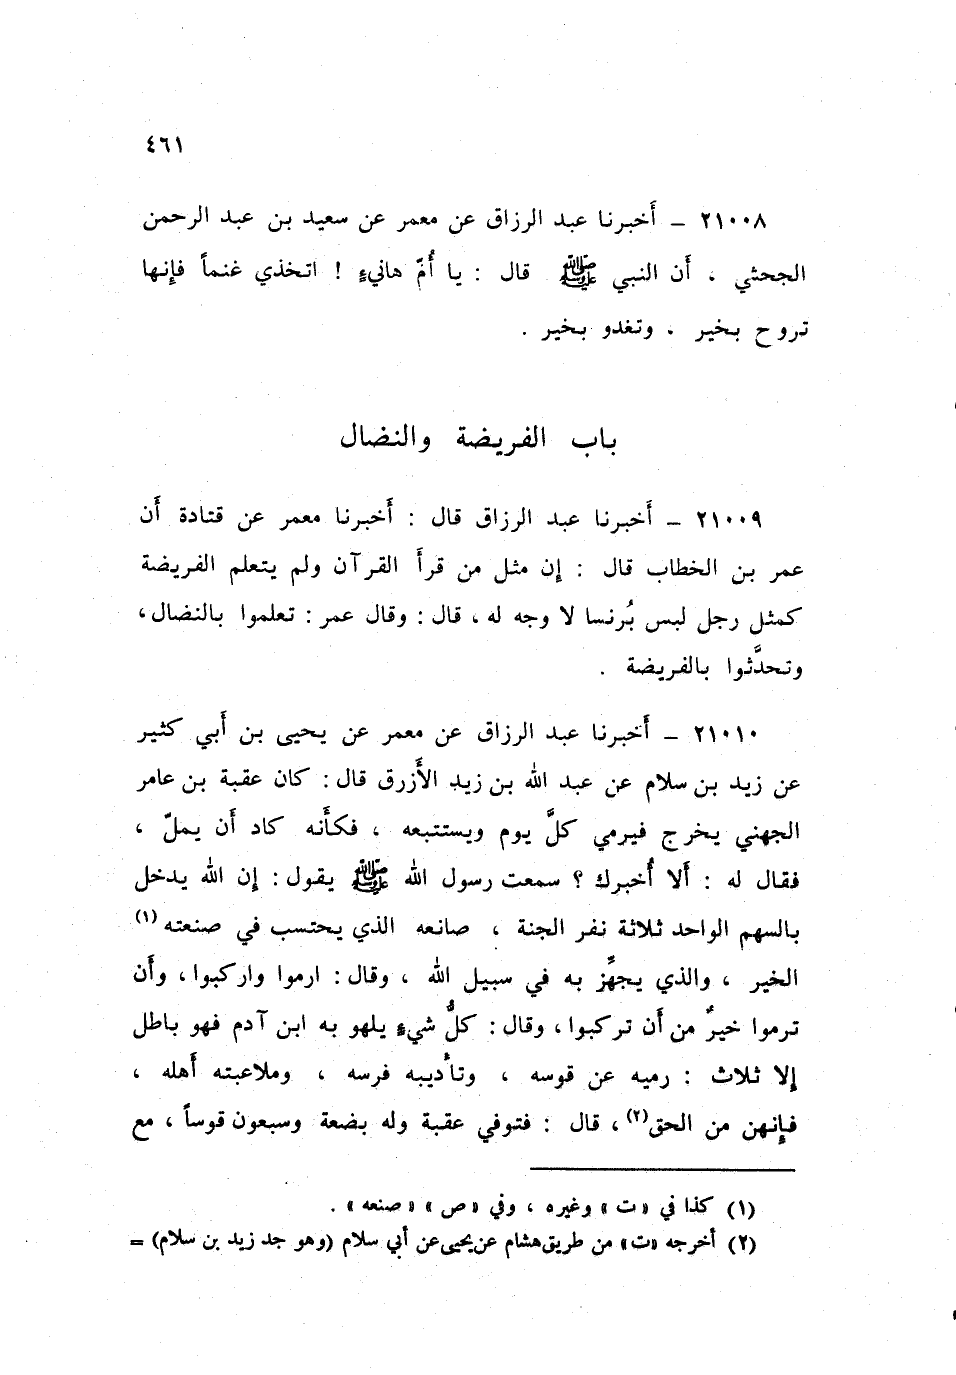 ٤٦١
٢١٠٠٨ – أَخبرنا عبد الرزاق عن معمر عن سعيد بن عبد الرحمن
الجحثي ، أَن النبي ﷺ قال : يا أُمّ هانيءٍ ! اتخذي غنماً فإِنها
تروح بخير ، وتغدو بخير .
باب الفريضة والنضال
٢١٠٠٩ – أَخبرنا عبد الرزاق قال : أَخبرنا معمر عن قتادة أَن
عمر بن الخطاب قال : إِن مثل من قرأَ القرآن ولم يتعلم الفريضة
كمثل رجل لبس بُرنسا لا وجه له ، قال : وقال عمر : تعلموا بالنضال ،
وتحدَّثوا بالفريضة .
٢١٠١٠ – أَخبرنا عبد الرزاق عن معمر عن يحيى بن أَبي كثير
عن زيد بن سلام عن عبد الله بن زيد الأَزرق قال : كان عقبة بن عامر
الجهني يخرج فيرمي كلَّ يوم ويستتبعه ، فكأَنه كاد أَن يملّ ،
فقال له : أَلا أُخبرك ؟ سمعت رسول الله ﷺ يقول : إِن الله يدخل
بالسهم الواحد ثلاثة نفر الجنة ، صانعه الذي يحتسب في صنعته (١)
الخير ، والذي يجهِّز به في سبيل الله ، وقال : ارموا واركبوا ، وأَن
ترموا خيرٌ من أَن تركبوا ، وقال : كلُّ شيءٍ يلهو به ابن آدم فهو باطل
إِلا ثلاث : رميه عن قوسه ، وتأْديبه فرسه ، وملاعبته أَهله ،
فإِنهن من الحق (٢) ، قال : فتوفي عقبة وله بضعة وسبعون قوساً ، مع
(١) كذا في «ت» وغيره ، وفي «ص» «صنعه» .
(٢) أخرجه «ت» من طريق هشام عن يحيى عن أبي سلام (وهو جد زيد بن سلام) =